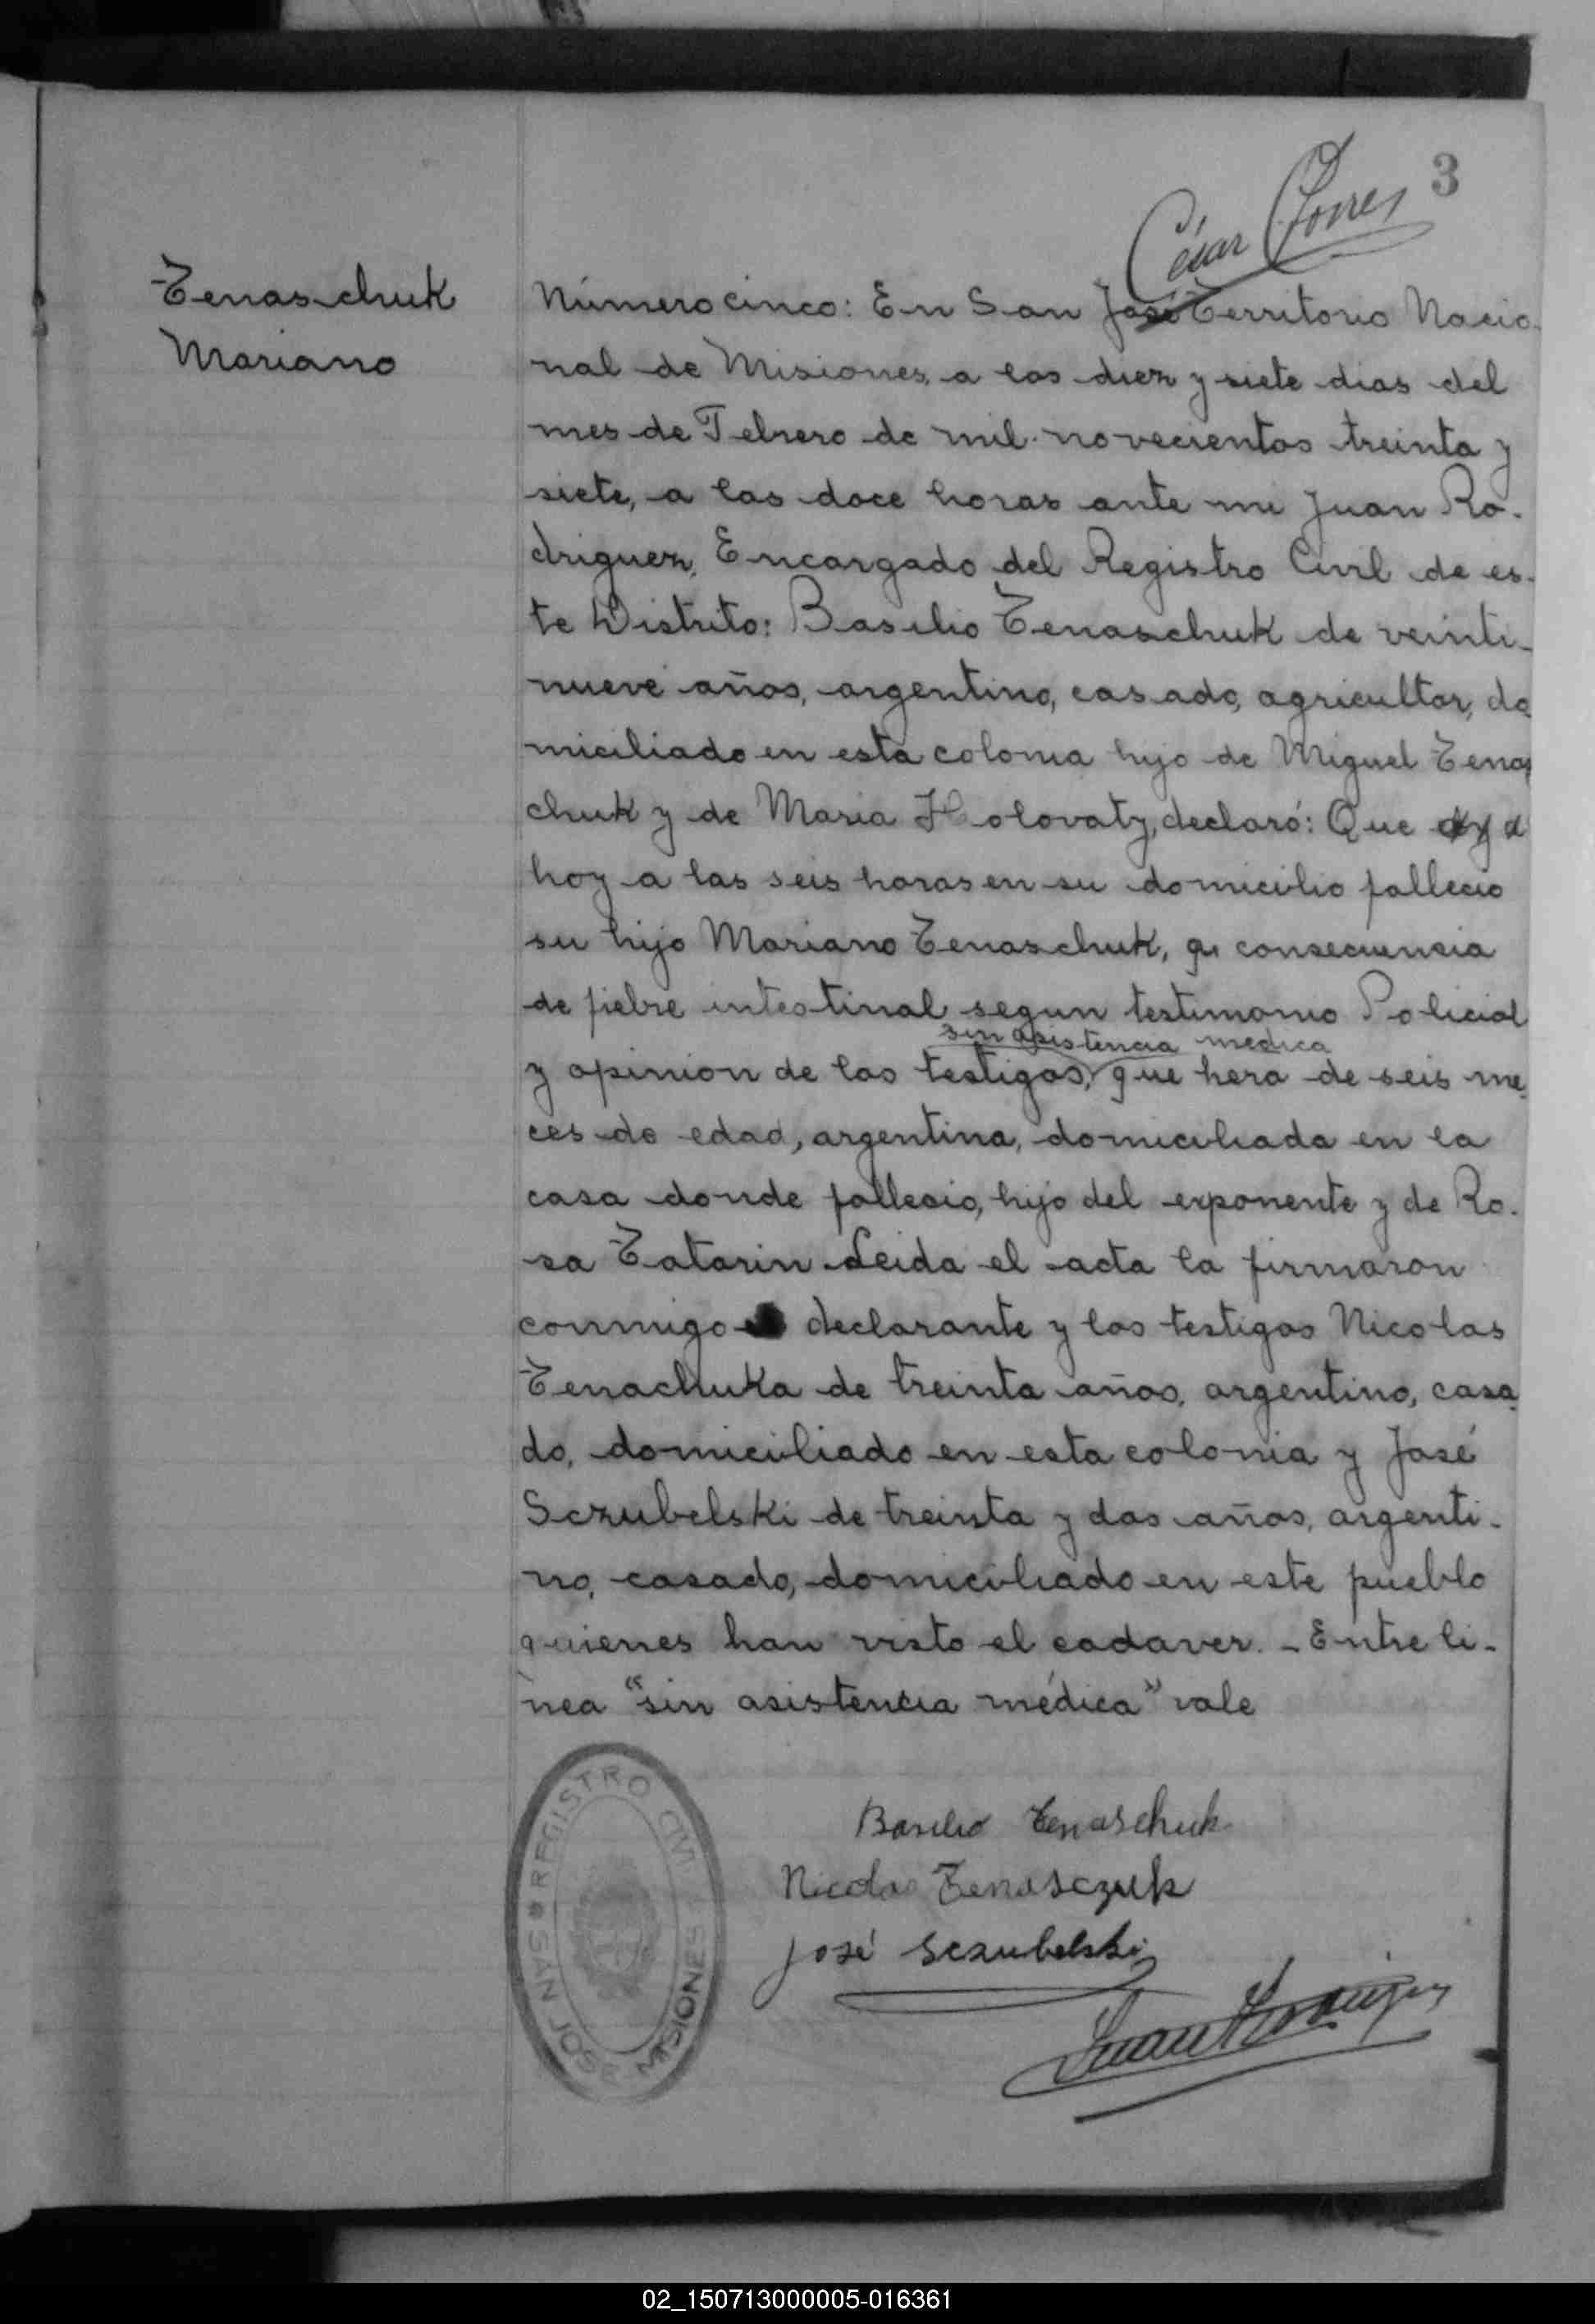 3
César Torres
Tenaschuk
Mariano
Número cinco: En San José Territorio Nacio-
nal de Misiones, a los diez y siete dias del
mes de Febrero de mil novecientos treinta y
siete, a las doce horas ante mi Juan Ro-
driguez, Encargado del Registro Civil de es-
te Distrito: Basilio Tenaschuk de veinti-
nueve años, argentino, casado, agricultor, do
miciliado en esta colonia hijo de Miguel Tenas
chuk y de Maria Holovaty, declaró: Que
hoy a las seis horas en su domicilio fallecio
su hijo Mariano Tenaschuk, a consecuencia
de fiebre intestinal segun testimonio Policial
sin asistencia medica
y opinion de los testigos, que hera de seis me
ces de edad, argentina, domiciliada en la
casa donde fallecio, hijo del exponente y de Ro-
sa Tatarin Leida el acta la firmaron
conmigo declarante y los testigos Nicolas
Tenachuka de treinta años, argentino, casa
do, domiciliado en esta colonia y José
Sczubelski de treinta y dos años, argenti-
no, casado, domiciliado en este pueblo
quienes han visto el cadaver. - Entre li-
nea "sin asistencia médica" vale
Basilio Tenaschuk
Nicolas Tenasczuk
José Sczubelski
Juan Rodriguez
REGISTRO CIVIL
SAN JOSE MISIONES
02_150713000005-016361